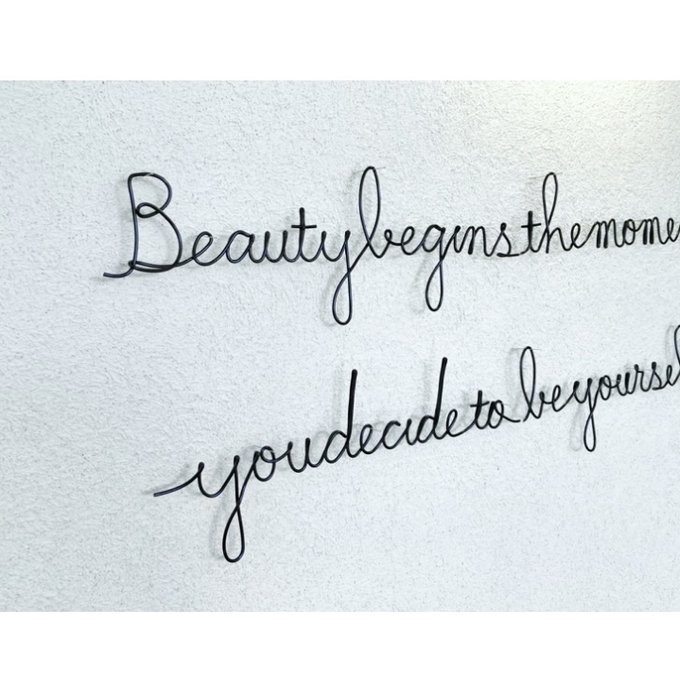 Beauty begins the mome
you decide to be yoursel